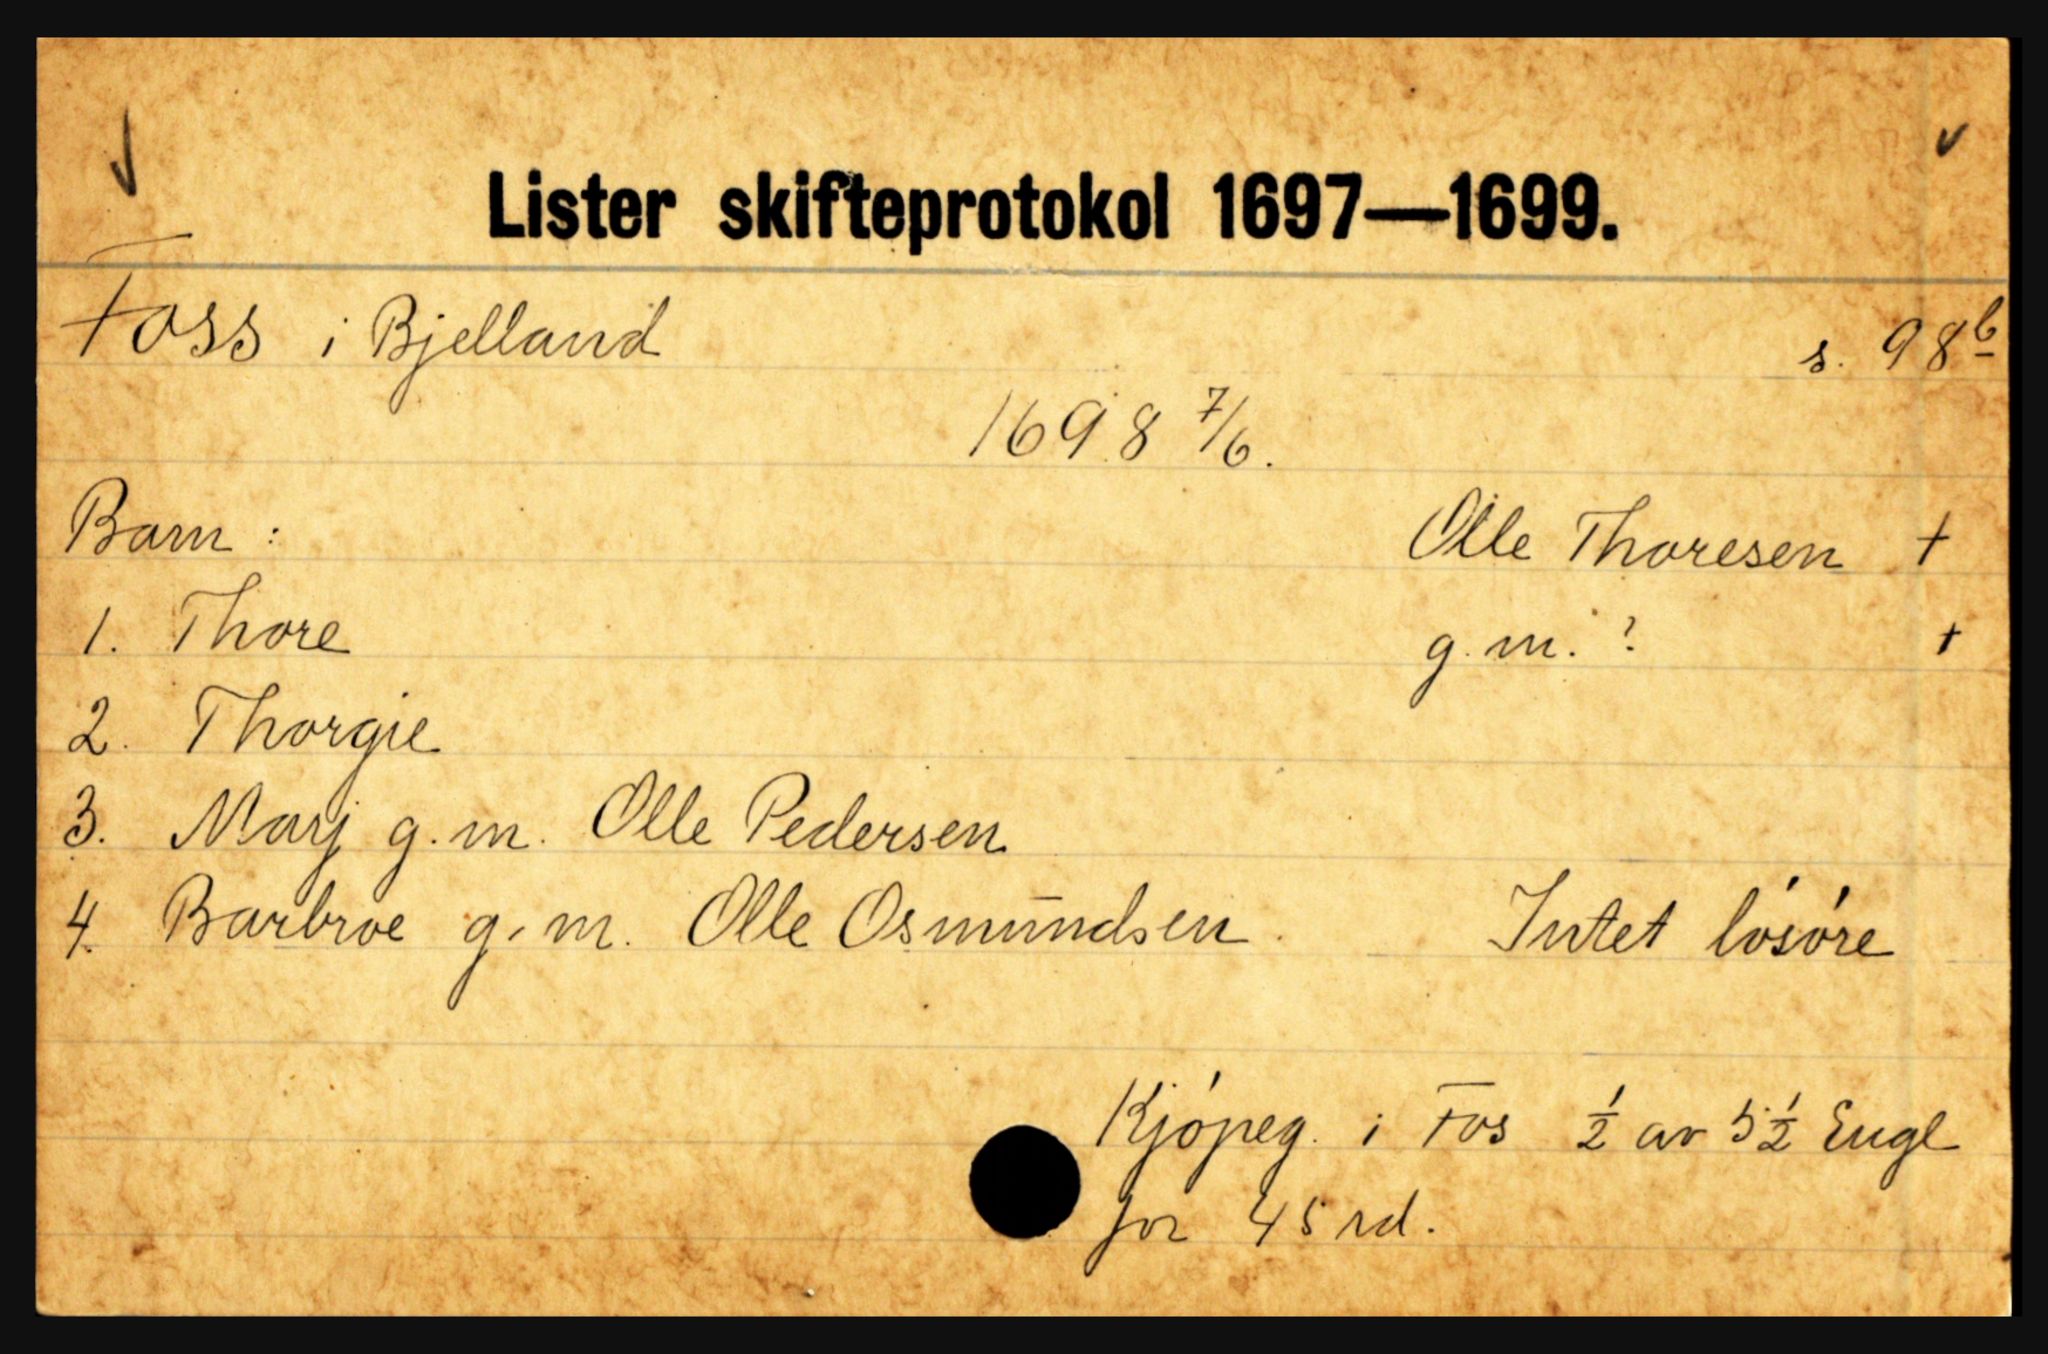 Lister skifteprotokol 1697—1699.
Foss i Bjelland s. 98b
1698 7/6.
Barn: Olle Thoresen +
1. Thore g.m. ? +
2. Thorgie
3. Marj g.m. Olle Pedersen
4. Barbroe g.m. Olle Osmundsen. Intet lósóre
Kjópeg. i Fos 1/2 av 5 1/2 Engl
for 45 rd.